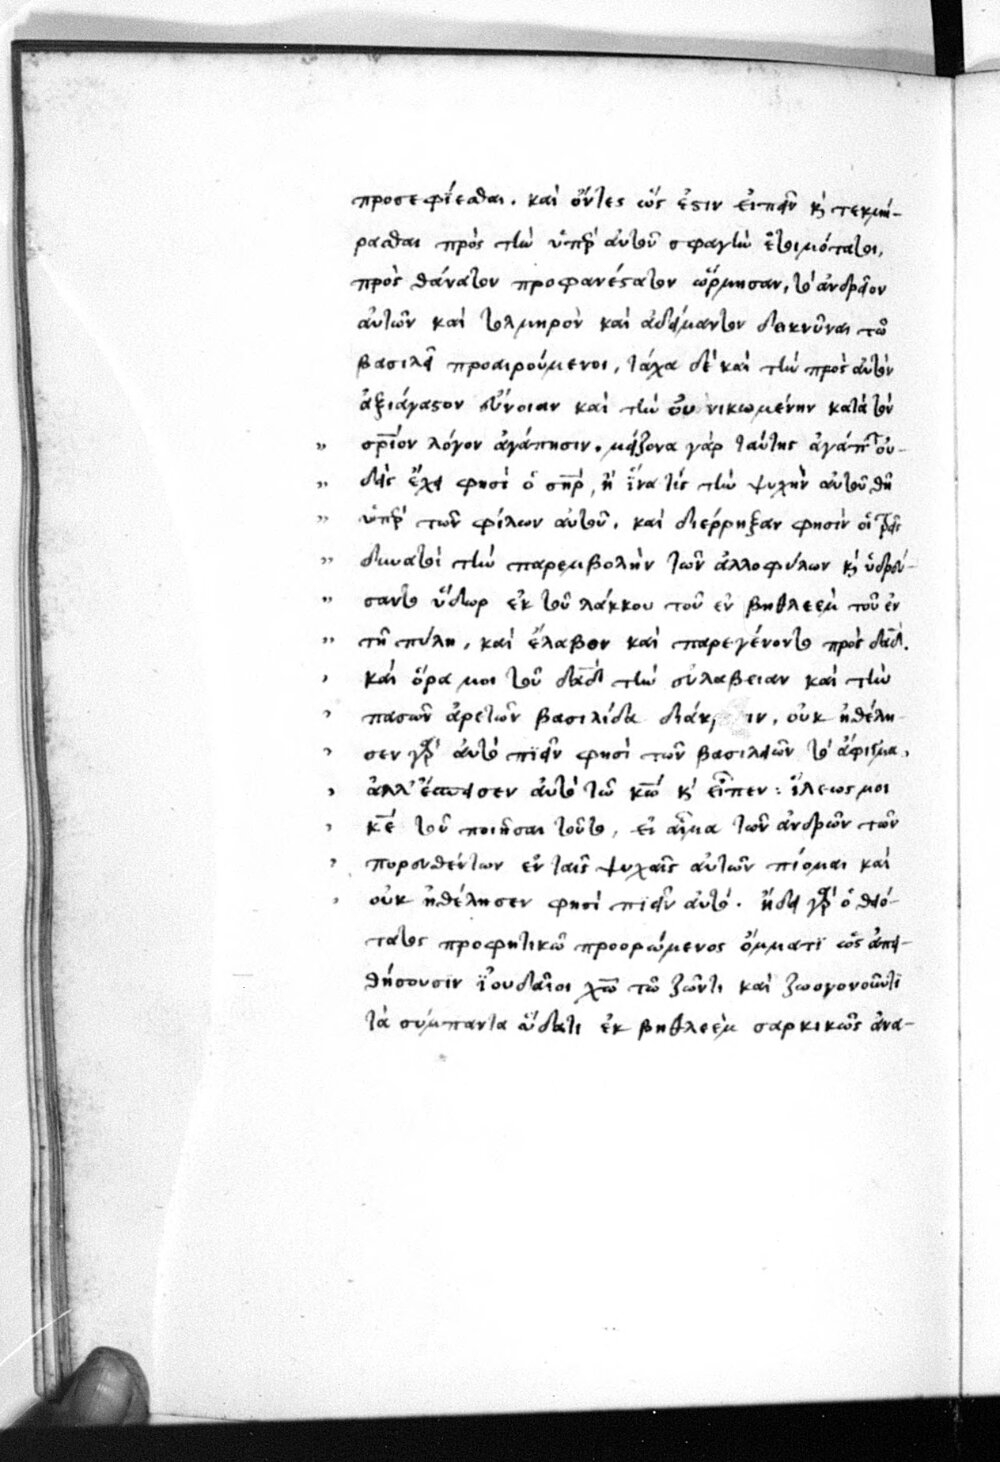 προσεφίεσθαι. καὶ ὄντες ὥς ἐστιν εἰπεῖν κ̀ τεκμή-
ρασθαι πρὸς τὴν ὑπὲρ αὐτοῦ σφαγὴν ἑτοιμότατοι,
πρὸς θάνατον προφανέστατον ὥρμησαν, τὸ ἀνδρεῖον
αὐτῶν καὶ τολμηρὸν καὶ ἀδάμαντον δεικνῦναι τῶ
βασιλεῖ προαιρούμενοι, τάχα δὲ καὶ τὴν πρὸς αὐτὸν
ἀξιάγαστον εὔνοιαν καὶ τὴν οὐ νικωμένην κατὰ τὸν
„ σρ̅ιον λόγον ἀγάπησιν. μείζονα γὰρ ταύτης ἀγάπην οὐ-
„ δεὶς ἔχει φησὶ ὁ ση̅ρ, ἢ ἵνα τίς τὴν ψυχὴν αὐτοῦ θῆ
„ ὑπὲρ τῶν φίλων αὐτοῦ. καὶ διέρρηξαν φησὶν οἱ τρεῖς
„ δυνατοὶ τὴν παρεμβολὴν τῶν ἀλλοφύλων κ̀ ὑδρεύ-
„ σαντο ὕδωρ ἐκ τοῦ λάκκου τοῦ ἐν βηθλεὲμ τοῦ ἐν
„ τῆ πύλη, καὶ ἔλαβον καὶ παρεγένοντο πρὸς δα̅δ.
, καὶ ὅρα μοι τοῦ δα̅δ τὴν εὐλάβειαν καὶ τὴν
, πασῶν ἀρετῶν βασιλίδα οὐκ ἠθέλη-
, σεν γὰρ αὐτὸ πϊεῖν φησὶ τῶν βασιλειῶν τὸ
, ἀλλ' ἔσπεισεν αὐτὸ τῶ κ̅ω κ̀ εἶπεν: ἵλεως μοι
, κ̅ε τοῦ ποιῆσαι τοῦτο, εἰ αἷμα τῶν ἀνδρῶν τῶν
, πορευθέντων ἐν ταῖς ψυχαῖς αὐτῶν πίομαι καὶ
, οὐκ ἠθέλησεν φησὶ πιεῖν αὐτό. ἤδει γὰρ ὁ θειό-
τατος προφητικῶ προορώμενος ὄμματϊ ὡς ἀπει-
θήσουσϊν ϊουδαῖοι χ̅ω τῶ ζῶντι καὶ ζωογονοῦντϊ
τὰ σύμπαντα ὕδατι ἐκ βηθλεὲμ σαρκικῶς ἀνα-